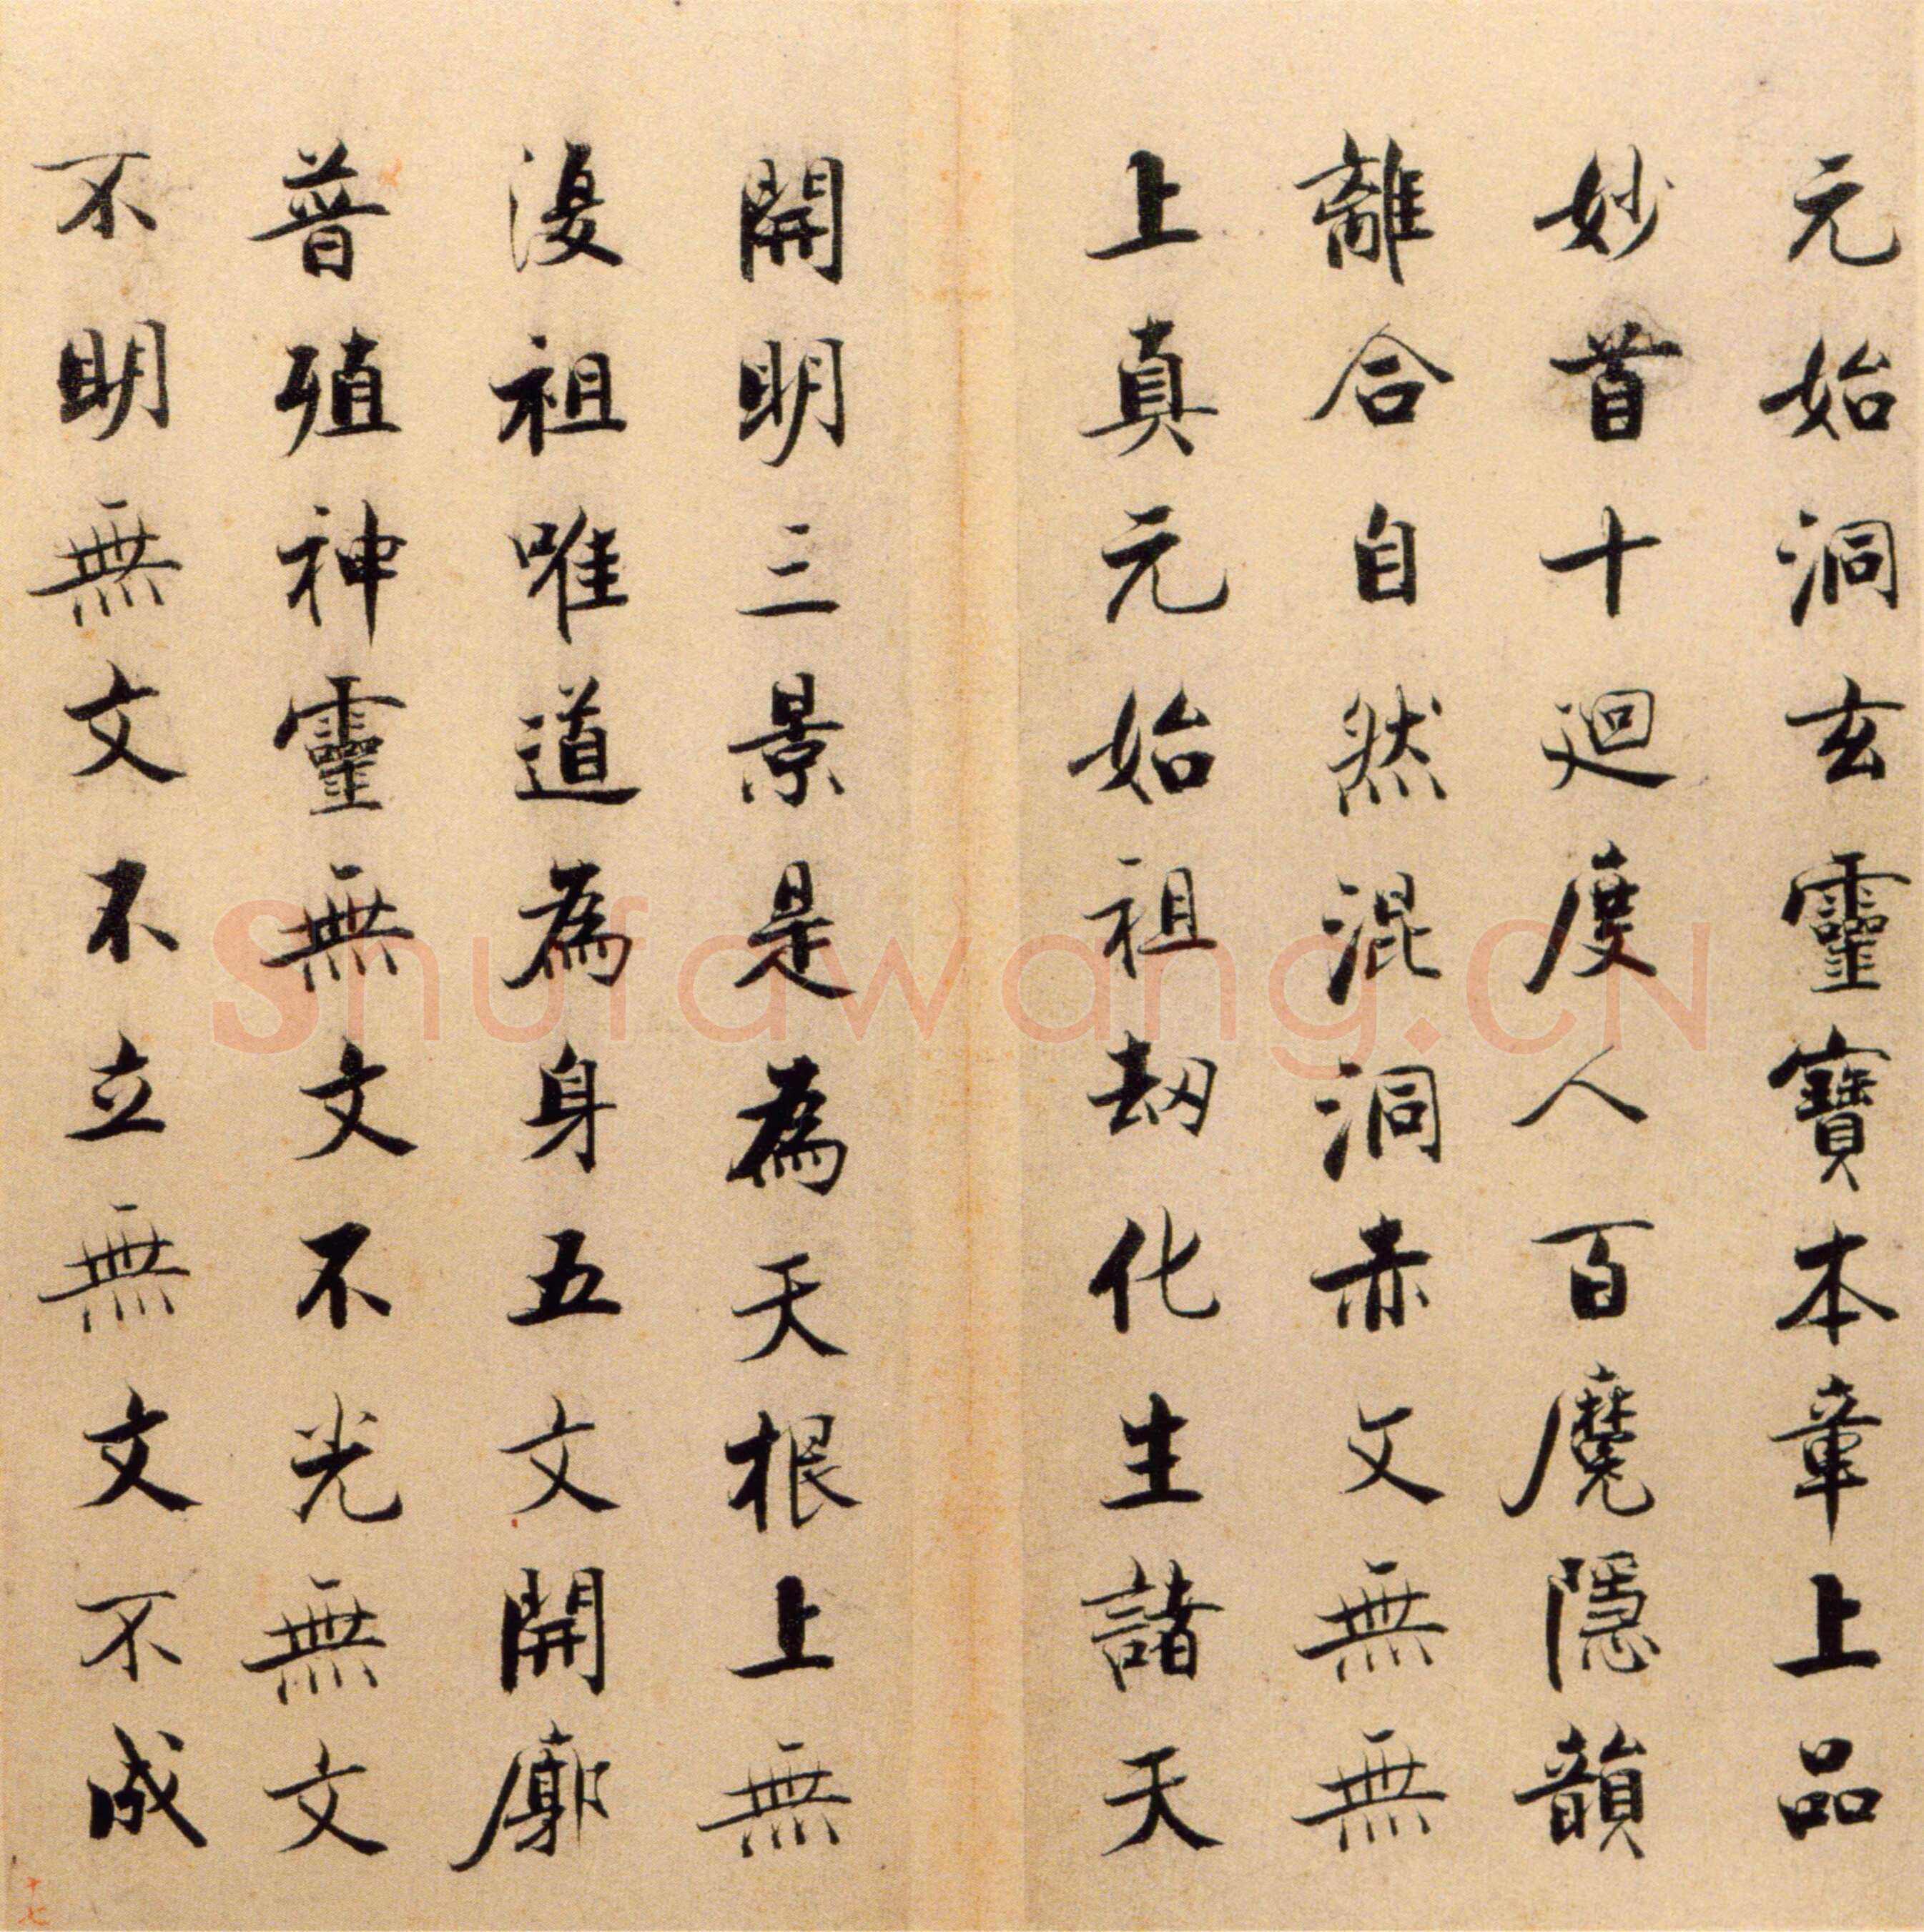 元始洞玄靈寶本章上品
妙首十迴度人百魔隱韻
離合自然混洞赤文無無
上真元始祖劫化生諸天
開明三景是為天根上無
澓祖唯道為身五文開廓
普殖神靈無文不光無文
不明無文不立無文不成
十七
Shufawang.CN